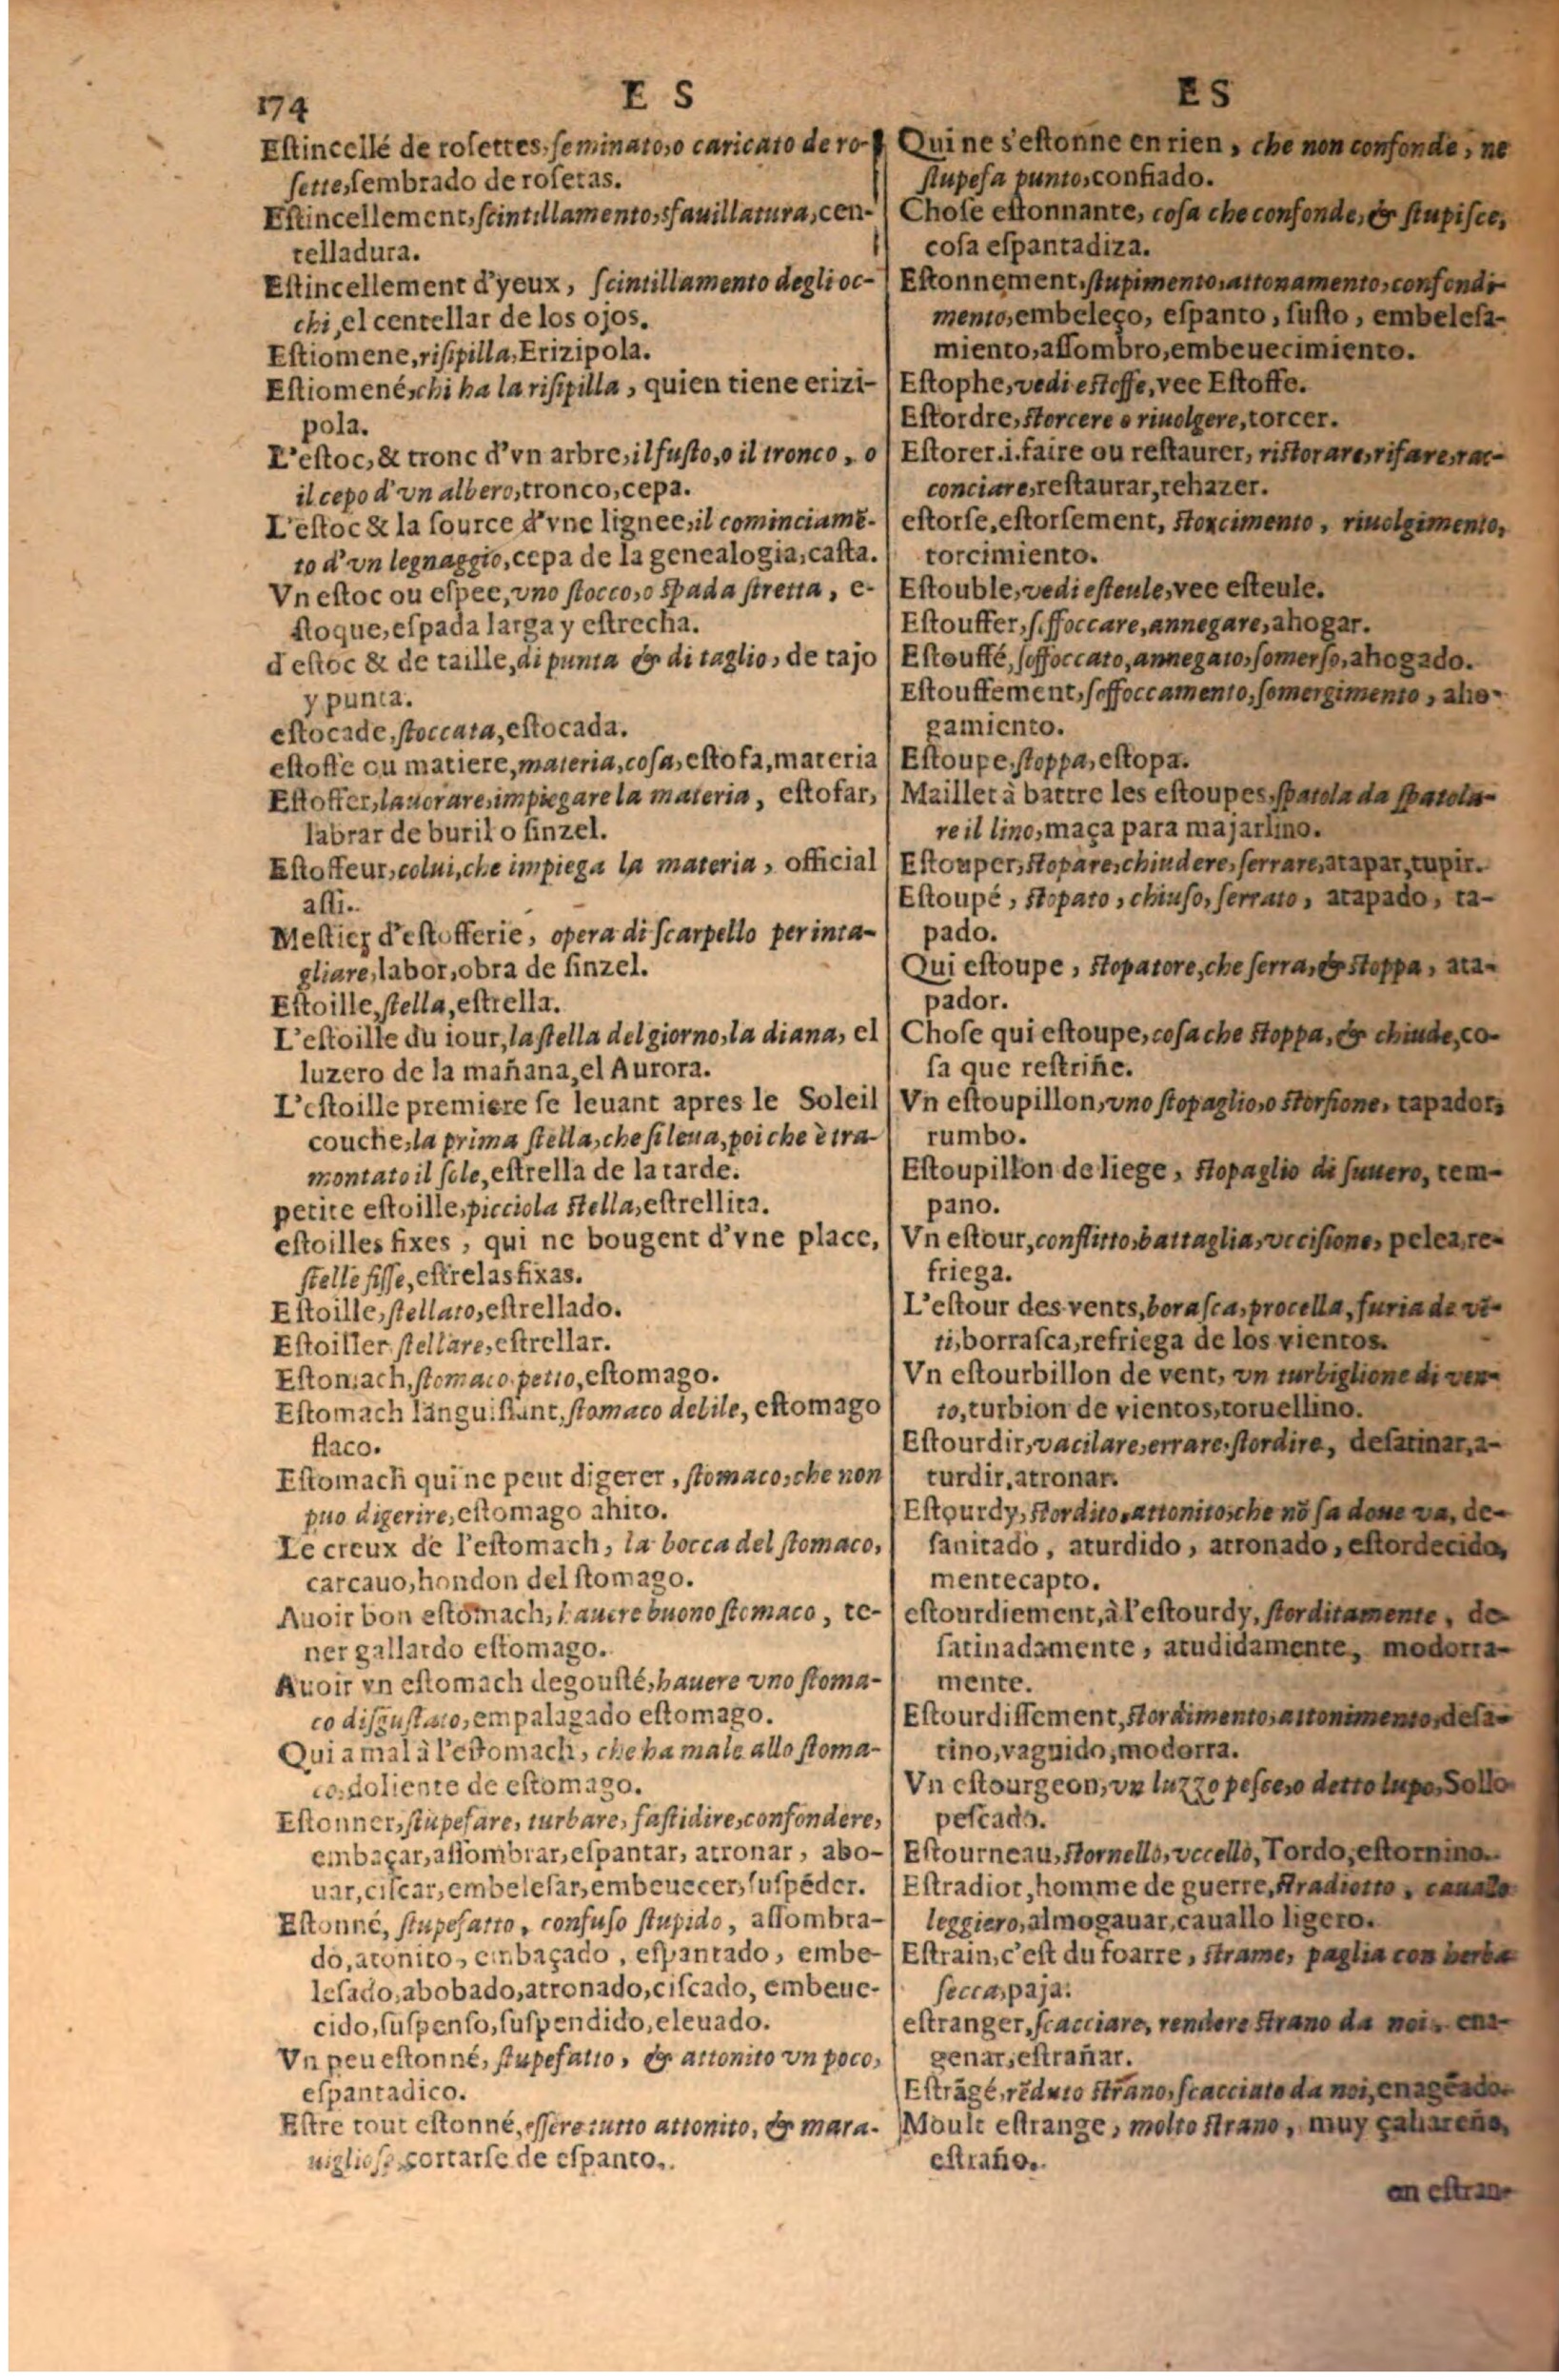 174
E S
Eſtincellé de roſettes, ſeminato, o caricato de ro-
ſette, ſembrado de roſetas.
Eſtincellement, ſcintillamento, sfauillatura, cen-
telladura.
Eſtincellement d'yeux, ſcintillamento degli oc-
chi, el centellar de los ojos.
Eſtiomene, riſipilla, Erizipola.
Eſtiomené, chi ha la riſipilla, quien tiene erizi-
pola.
L'eſtoc, & tronc d'vn arbre, il fuſto, o il tronco, o
il cepo d'vn albero, tronco, cepa.
L'eſtoc & la ſource d'vne lignee, il cominciamē-
to d'vn legnaggio, cepa de la genealogia, caſta.
Vn eſtoc ou eſpee, vno ſtocco, o ſpada ſtretta, e-
ſtoque, eſpada larga y eſtrecha.
d'eſtoc & de taille, di punta & di taglio, de tajo
y punta.
eſtocade, ſtoccata, eſtocada.
eſtoffe ou matiere, materia, coſa, eſtofa, materia
Eſtoffer, lauorare, impiegare la materia, eſtofar,
labrar de buril o ſinzel.
Eſtoffeur, colui, che impiega la materia, official
aſſi.
Meſtier d'eſtofferie, opera di ſcarpello per inta-
gliare, labor, obra de ſinzel.
Eſtoille, ſtella, eſtrella.
L'eſtoille du iour, la ſtella del giorno, la diana, el
luzero de la mañana, el Aurora.
L'eſtoille premiere ſe leuant apres le Soleil
couche, la prima ſtella, che ſi leua, poi che è tra-
montato il ſole, eſtrella de la tarde.
petite eſtoille, picciola ſtella, eſtrellita.
eſtoilles fixes, qui ne bougent d'vne place,
ſtelle fiſſe, eſtrelas fixas.
Eſtoille, ſtellato, eſtrellado.
Eſtoiller ſtellare, eſtrellar.
Eſtomach, ſtomaco petto, eſtomago.
Eſtomach languiſſant, ſtomaco debile, eſtomago
flaco.
Eſtomach qui ne peut digerer, ſtomaco, che non
puo digerire, eſtomago ahito.
Le creux de l'eſtomach, la bocca del ſtomaco,
carcauo, hondon del ſtomago.
Auoir bon eſtomach, hauere buono ſtomaco, te-
ner gallardo eſtomago.
Auoir vn eſtomach degouſté, hauere vno ſtoma-
co diſguſtato, empalagado eſtomago.
Qui a mal à l'eſtomach, che ha male allo ſtoma-
co, doliente de eſtomago.
Eſtonner, ſtupefare, turbare, faſtidire, confondere,
embaçar, aſſombrar, eſpantar, atronar, abo-
uar, ciſcar, embeleſar, embeuecer, ſuſpēder.
Eſtonné, ſtupefatto, confuſo ſtupido, aſſombra-
do, atonito, embaçado, eſpantado, embe-
leſado, abobado, atronado, ciſcado, embeue-
cido, ſuſpenſo, ſuſpendido, eleuado.
Vn peu eſtonné, ſtupefatto, & attonito vn poco,
eſpantadico.
Eſtre tout eſtonné, eſſere tutto attonito, & mara-
uiglioſo, cortarſe de eſpanto.
E S
Qui ne s'eſtonne en rien, che non confonde, ne
ſtupefa punto, confiado.
Choſe eſtonnante, coſa che confonde, & ſtupiſce,
coſa eſpantadiza.
Eſtonnement, ſtupimento, attonamento, confondi-
mento, embeleço, eſpanto, ſuſto, embeleſa-
miento, aſſombro, embeuecimiento.
Eſtophe, vedi eſtoffe, vee Eſtoffe.
Eſtordre, ſtorcere o riuolgere, torcer.
Eſtorer. i. faire ou reſtaurer, riſtorare, rifare, rac-
conciare, reſtaurar, rehazer.
eſtorſe, eſtorſement, ſtorcimento, riuolgimento,
torcimiento.
Eſtouble, vedi eſteule, vee eſteule.
Eſtouffer, ſoffoccare, annegare, ahogar.
Eſtouffé, ſoffoccato, annegato, ſomerſo, ahogado.
Eſtouffement, ſoffoccamento, ſomergimento, aho-
gamiento.
Eſtoupe, ſtoppa, eſtopa.
Maillet à battre les eſtoupes, ſpatola da ſpatola-
re il lino, maça para majar lino.
Eſtouper, ſtopare, chiudere, ſerrare, atapar, tupir.
Eſtoupé, ſtopato, chiuſo, ſerrato, atapado, ta-
pado.
Qui eſtoupe, ſtopatore, che ſerra, & ſtoppa, ata-
pador.
Choſe qui eſtoupe, coſa che ſtoppa, & chiude, co-
ſa que reſtriñe.
Vn eſtoupillon, vno ſtopaglio, o ſtorſione, tapador,
rumbo.
Eſtoupillon de liege, ſtopaglio di ſuuero, tem-
pano.
Vn eſtour, conflitto, battaglia, vcciſione, pelea, re-
friega.
L'eſtour des vents, boraſca, procella, furia de vē-
ti, borraſca, refriega de los vientos.
Vn eſtourbillon de vent, vn turbiglione di ven-
to, turbion de vientos, toruellino.
Eſtourdir, vacilare, errare, ſtordire, deſatinar, a-
turdir, atronar.
Eſtourdy, ſtordito, attonito, che nō ſa doue va, de-
ſanitado, aturdido, atronado, eſtordecido,
mentecapto.
eſtourdiement, à l'eſtourdy, ſtorditamente, de-
ſatinadamente, atudidamente, modorra-
mente.
Eſtourdiſſement, ſtordimento, attonimento, deſa-
tino, vaguido, modorra.
Vn eſtourgeon, vn luzzo peſce, o detto lupo, Sollo
peſcado.
Eſtourneau, ſtornello, vccello, Tordo, eſtornino.
Eſtradiot, homme de guerre, ſtradiotto, cauallo
leggiero, almogauar, cauallo ligero.
Eſtrain, c'eſt du foarre, ſtrame, paglia con herba
ſecca, paja.
eſtranger, ſcacciare, rendere ſtrano da noi, ena-
genar, eſtrañar.
Eſtrāgé, rēduto ſtrano, ſcacciato da noi, enagēado.
Moult eſtrange, molto ſtrano, muy çahareño,
eſtraño.
en eſtran-